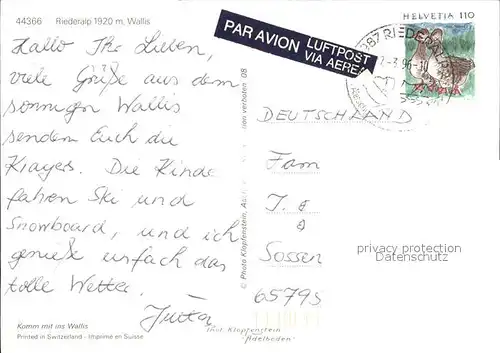 44366 Riederalp 1920 m, Wallis
Hallo Ihr Lieben,
viele Grüße aus dem
sonnigen Wallis
senden Euch die
Krayers. Die Kinder
fahren Ski und
Snowboard, und ich
genieße einfach das
tolle Wetter.
Jutta
Komm mit ins Wallis
Printed in Switzerland - Imprimé en Suisse
© Photo Klopfenstein, Ad
verboten 08
PAR AVION LUFTPOST
VIA AEREA
HELVETIA 110
DEUTSCHLAND
Fam
J.
Sossen
65795
privacy protection
Datenschutz
Phot Klopfenstein
"Adelboden"